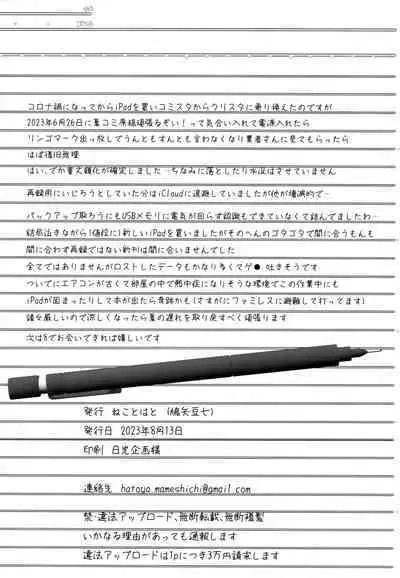 コロナ禍になってからiPadを買いコミスタからクリスタに乗り換えたのですが
2023年6月26日に夏コミ原稿頑張るぞい！って気合い入れて電源入れたら
リンゴマーク出っ放しでうんともすんとも言わなくなり業者さんに見てもらったら
ほぼ復旧無理
はい、でか重文鎮化が確定しました…ちなみに落としたり水没はさせていません
再録用にいじろうとしていた分はiCloudに退避していましたが他が壊滅的で…
バックアップ取ろうにもUSBメモリに電気が回らず認識もできていなくて詰んでましたわ…
結局泣きながら(値段に)新しいiPadを買いましたがそのへんのゴタゴタで間に合うもんも
間に合わず再録ではない新刊は間に合いませんでした
全てではありませんがロストしたデータもかなり多くてゲ●吐きそうです
ついでにエアコンが古くて部屋の中で熱中症になりそうな環境でこの作業中にも
iPadが固まったりして本が出たら奇跡かも(さすがにファミレスに避難して打ってます)
諸々厳しいので涼しくなったら夏の遅れを取り戻すべく頑張ります
次は冬でお会いできれば嬉しいです
発行 ねことはと (鳩矢豆七)
発行日 2023年8月13日
印刷 日光企画様
連絡先 hatoya.mameshichi@gmail.com
禁・違法アップロード、無断転載、無断複製
いかなる理由があっても通報します
違法アップロードは1pにつき3万円請求します